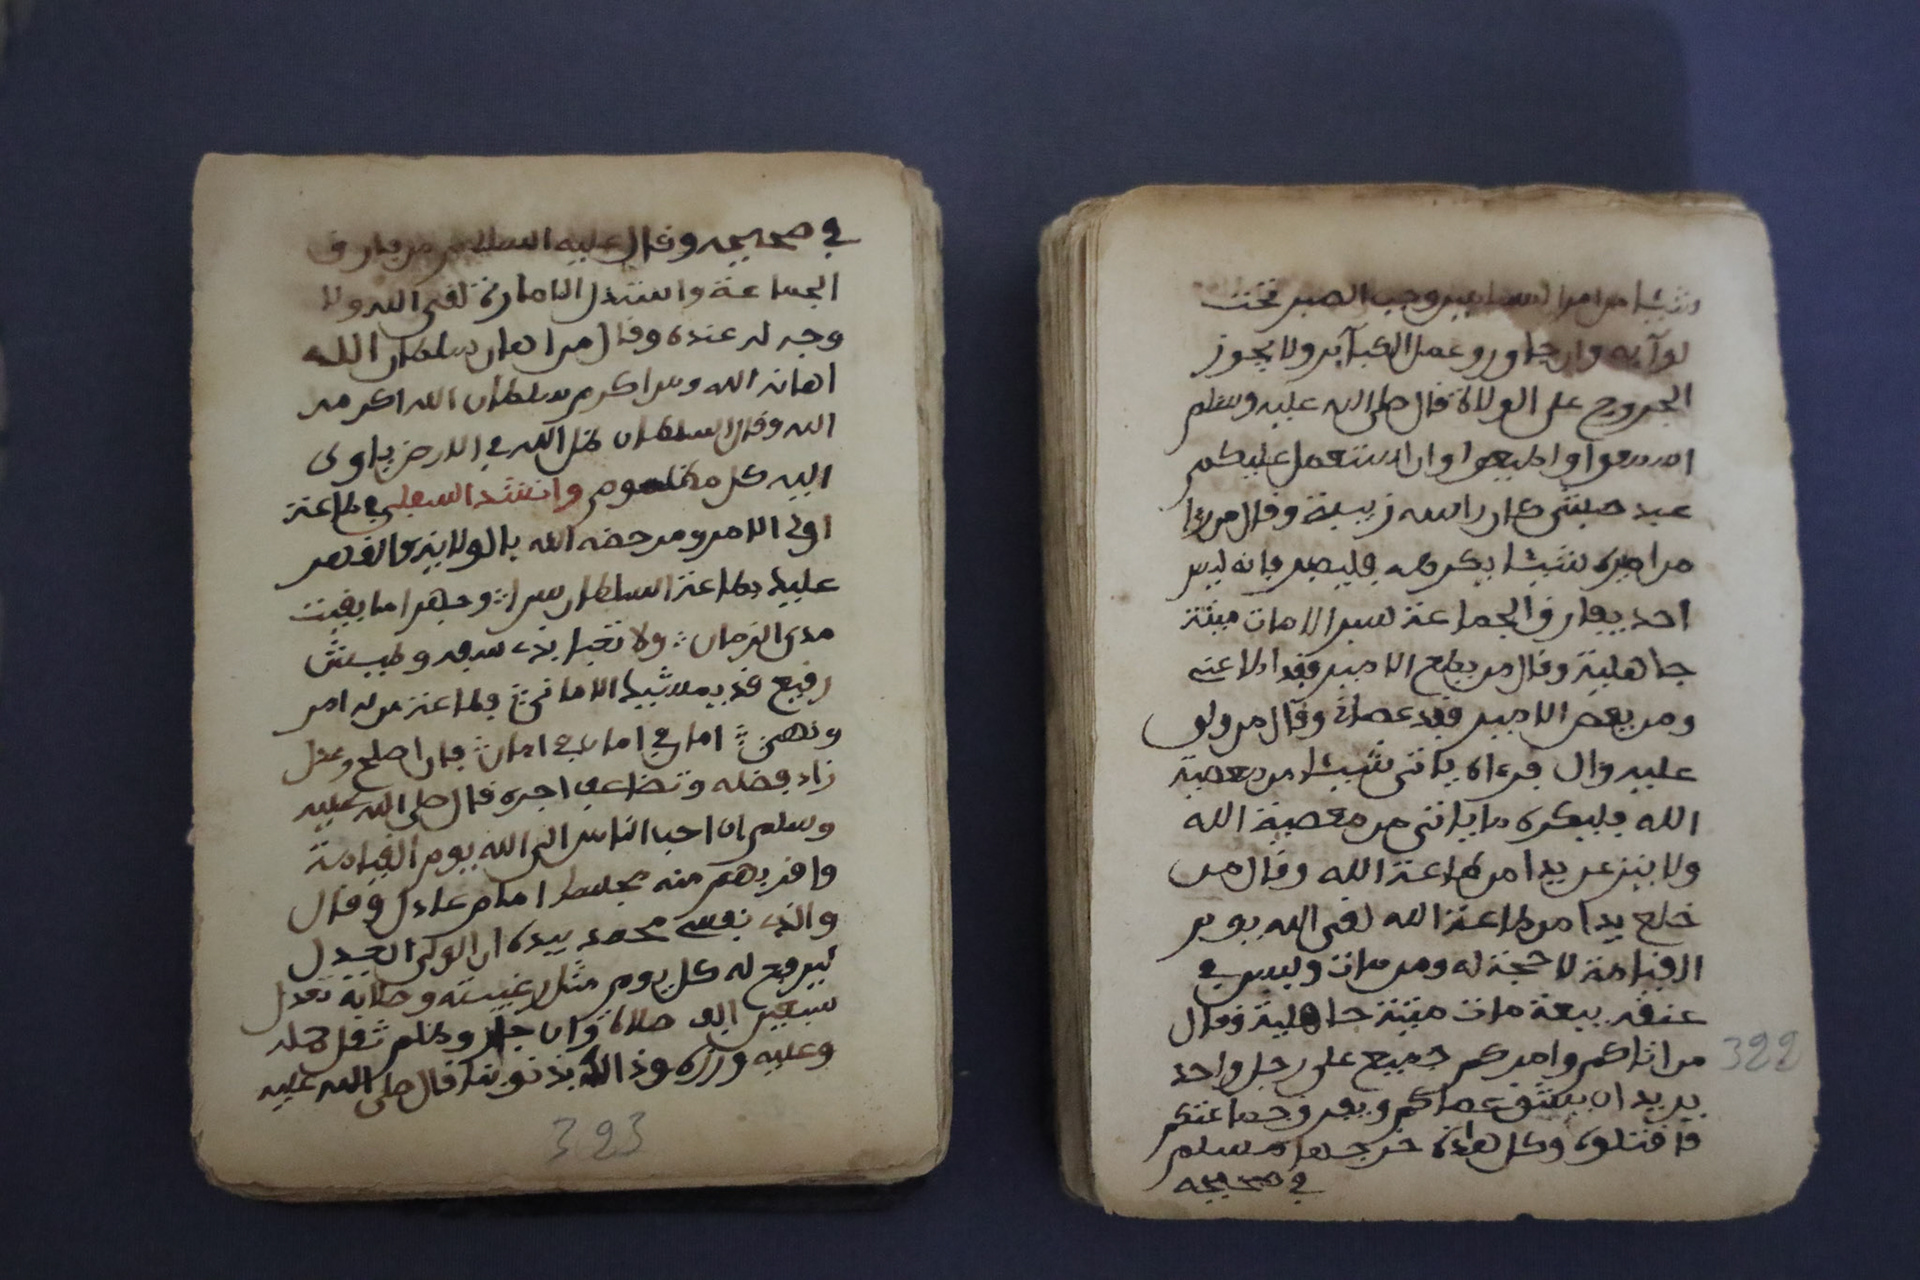 وشيئا من امر المسلمين وجب الصبر تحت
لوآيه وان جاور وعمل الكبآير ولا يجوز
الخروج على الولاة قال صلى الله عليه وسلم
اسمعوا واطيعوا وان استعمل عليكم
عبد حبشي كان راسه زبيبة وقال من رءا
من اميره شيئا يكرهه فليصبر فانه ليس
احد يفارق الجماعة شبرا الا مات ميتة
جاهلية وقال من يطع الامير فقد اطاعني
ومن يعص الامير فقد عصاني وقال من ولي
عليه وال فرءاه ياتي شيئا من معصية
الله فليكره ما ياتي من معصية الله
ولا ينزعن يدا من طاعة الله وقال من
خلع يدا من طاعة الله لقي الله يوم
القيامة لا حجة له ومن مات وليس في
عنقه بيعة مات ميتة جاهلية وقال
من اتاكم وامركم جميع على رجل واحد
يريد ان يشق عصاكم ويفرق جماعتكم
فاقتلوه وكل هذه خرجها مسلم
في صحيحه
322
في صحيحه وقال عليه السلام من فارق
الجماعة واستذل الامارة لقي الله ولا
وجه له عنده وقال من اهان سلطان الله
اهانه الله ومن اكرم سلطان الله اكرمه
الله وقال السلطان ظل الله في الارض ياوى
اليه كل مظلوم وانشد السعلي في طاعة
اولى الامر ومن خصه الله بالولاية والقهر
عليك بطاعة السلطان سرا وجهرا ما بقيت
مدى الزمان ولا تعبا بذى سفه وطيش
رفيع قد يشيد الاماني فطاعة من له امر
ونهي امان في امان في امان فان اصلح وعدل
زاد فضله وتضاعف اجره قال صلى الله عليه
وسلم ان احب الناس الى الله يوم القيامة
واقربهم منه مجلسا امام عادل وقال
والذى نفس محمد بيده ان الوالى العدل
ليرفع له كل يوم مثل رعيته وصلاته تعدل
سبعين الف صلاة وان جار وظلم ثقل حمله
وعليه وزره وذالك بذنوبنا قال صلى الله عليه
323